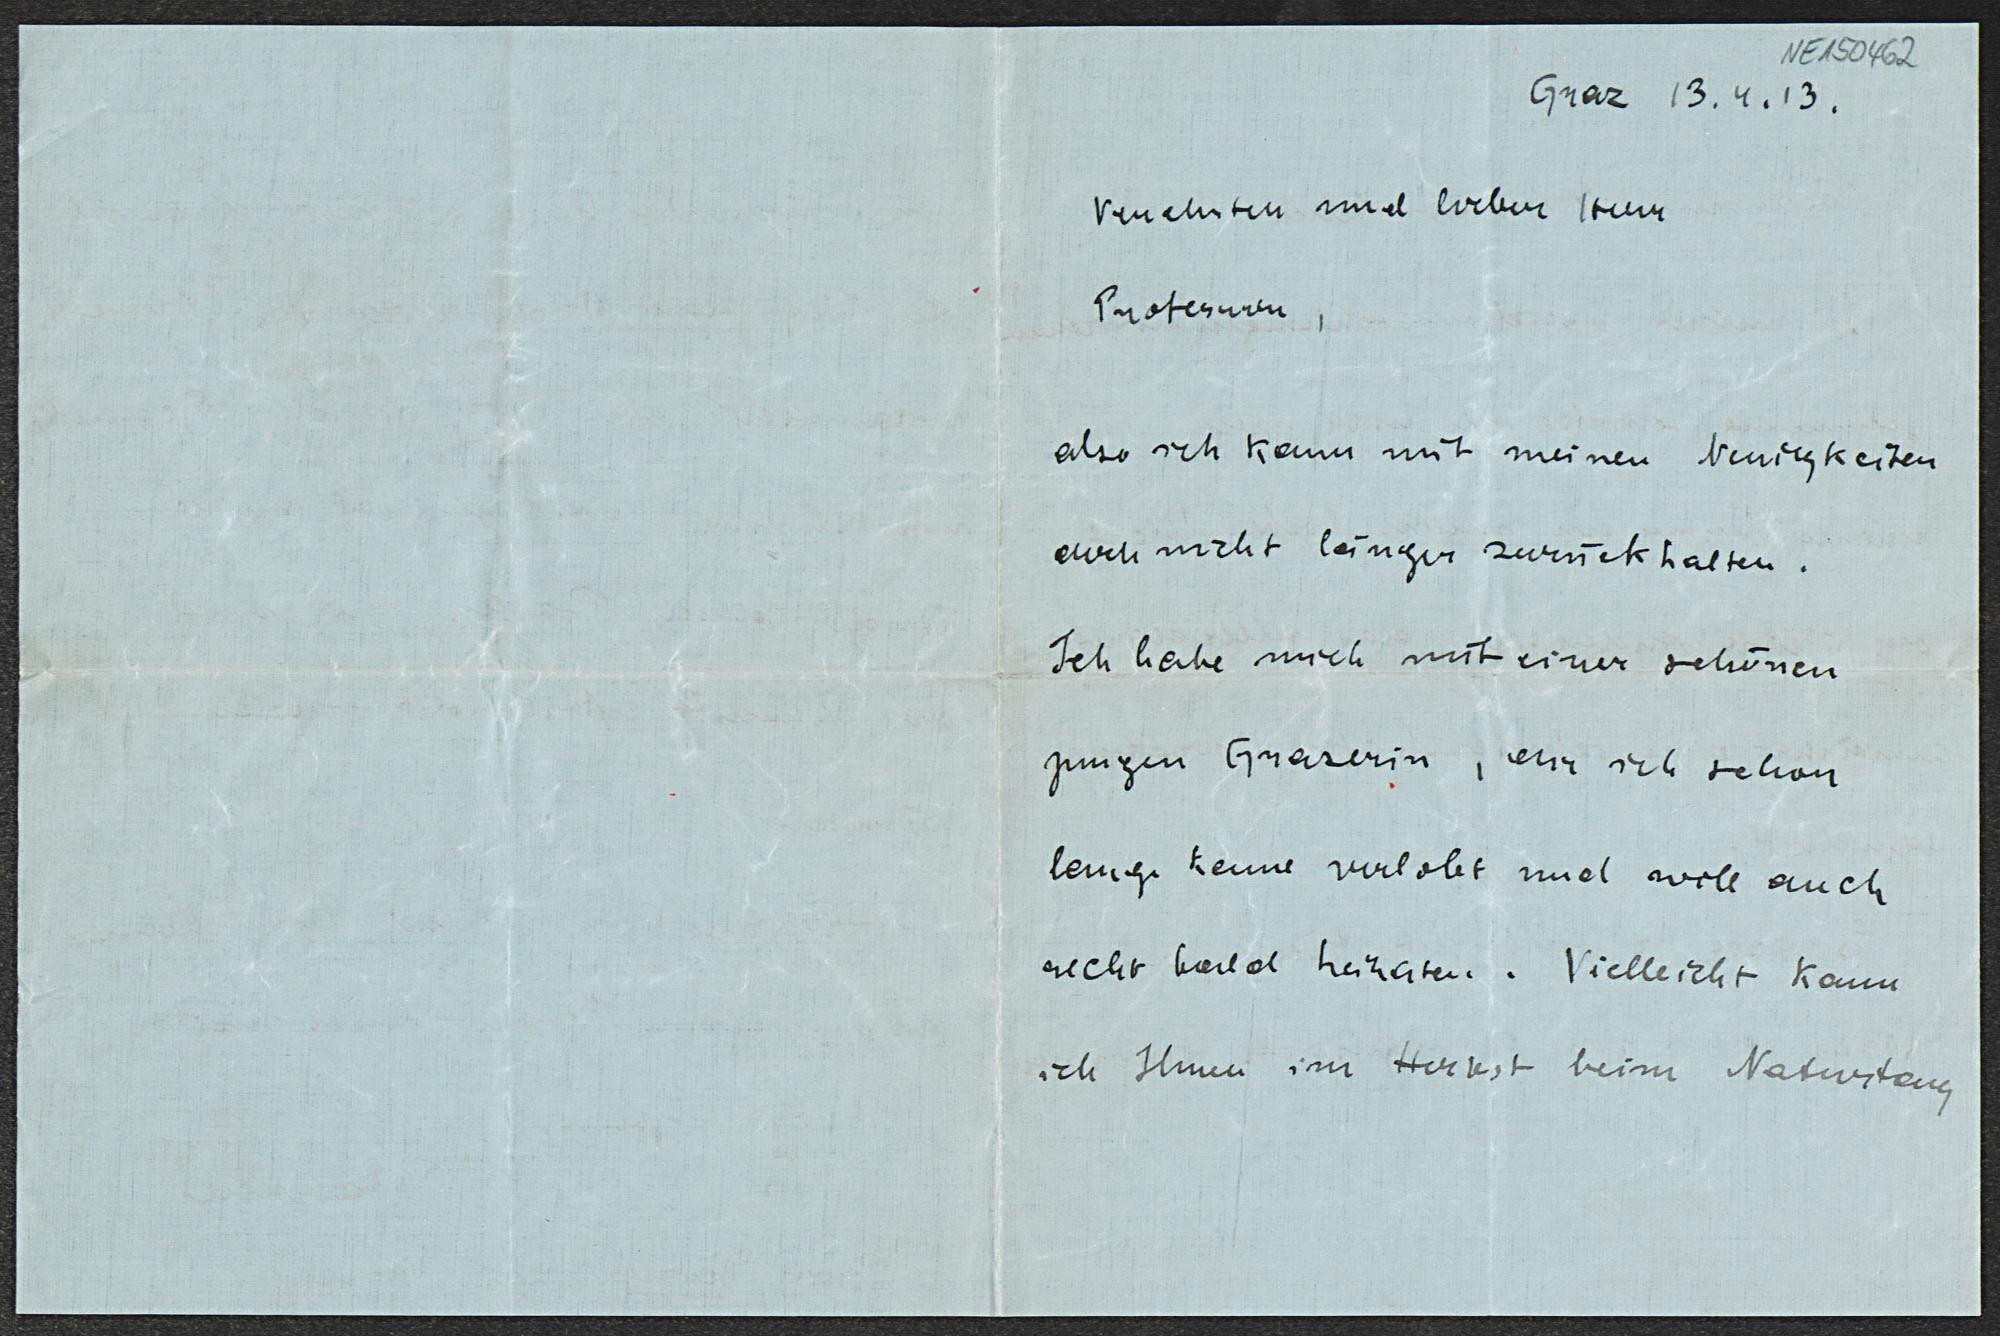 NE150462
Graz 13.4.13.
Verehrter und lieber Herr
Professor,
also ich kann mit meinen Neuigkeiten
doch nicht länger zurückhalten.
Ich habe mich mit einer schönen
jungen Grazerin, die ich schon
lange kenne verlobt und will auch
recht bald heiraten. Vielleicht kann
ich Ihnen im Herbst beim Naturstag